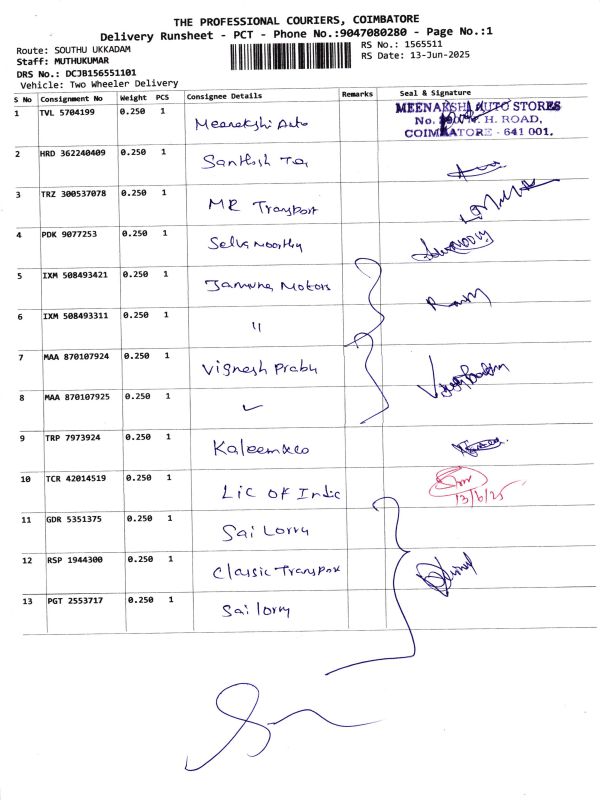 THE PROFESSIONAL COURIERS, COIMBATORE
Delivery Runsheet - PCT - Phone No.:9047080280 - Page No.:1
Route: SOUTHU UKKADAM
RS No.: 1565511
Staff: MUTHUKUMAR
RS Date: 13-Jun-2025
DRS No.: DCJB156551101
Vehicle: Two Wheeler Delivery
S No Consignment No Weight PCS Consignee Details Remarks Seal & Signature
1 TVL 5704199 0.250 1 Meenakshi Auto
MEENAKSHI AUTO STORES
No. H. ROAD,
COIMBATORE - 641 001.
2 HRD 362240409 0.250 1 Santhosh
3 TRZ 300537078 0.250 1 MR Transport
4 PDK 9077253 0.250 1 Selva moorthy
5 IXM 508493421 0.250 1 Jamuna Motors
6 IXM 508493311 0.250 1 "
7 MAA 870107924 0.250 1 Vignesh Prabu
8 MAA 870107925 0.250 1
9 TRP 7973924 0.250 1 Kaleem&co
10 TCR 42014519 0.250 1 LiC OF India
13/6/25
11 GDR 5351375 0.250 1 Sai Lorry
12 RSP 1944300 0.250 1 Classic Transport
13 PGT 2553717 0.250 1 Sai lorry